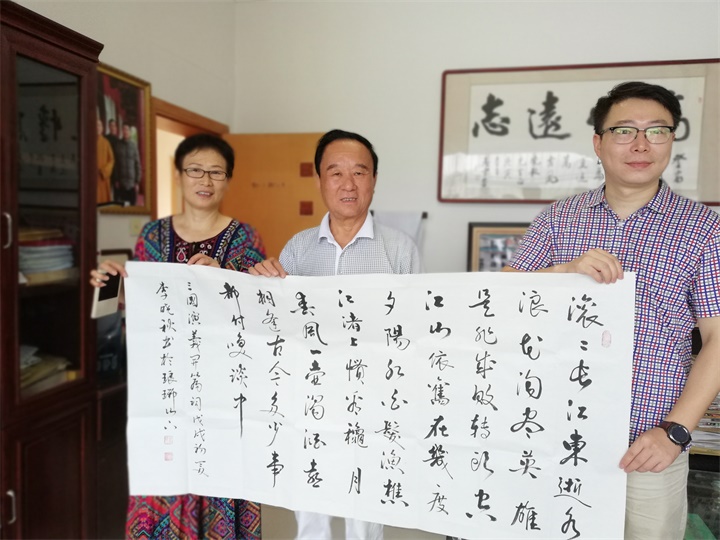 滚〻长江東逝水
浪花淘尽英雄
是非成敗转头空
江山依舊在幾度
夕陽红白髮漁樵
江渚上慣看穐月
春風一壶濁酒喜
相逢古今多少事
都付笑談中
三國演義开篇词戊戌初夏
书於琅琊山下
遠志